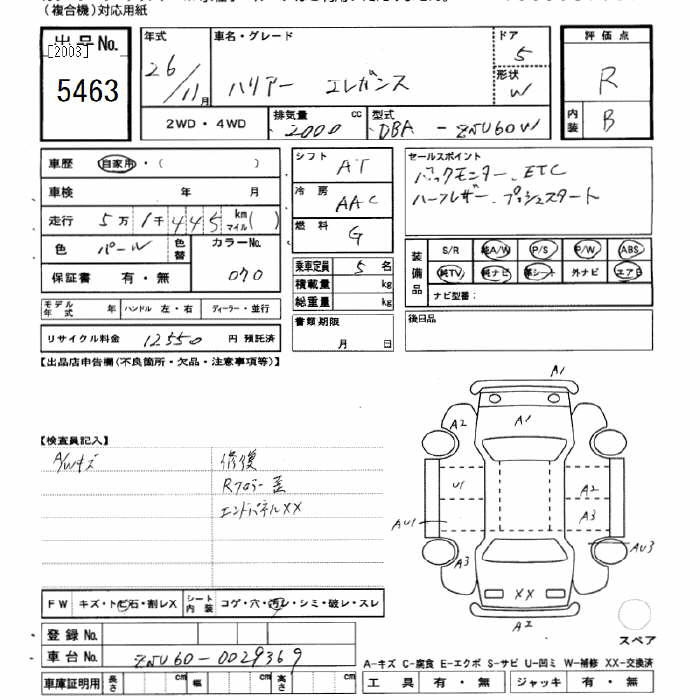 (複合機)対応用紙
出品No.
[2003]
5463
年式
26/11月
車名・グレード
ハリアー エレガンス
ドア
5
形状
W
2WD・4WD
排気量
2000
cc
型式
DBA - ZSU60W
評価点
R
内装
B
車歴
自家用・( )
車検 年 月
走行 5万1千445 km マイル( )
色 パール 色替
カラーNo.
070
保証書 有・無
モデル年式 年 ハンドル 左・右 ディーラー・並行
リサイクル料金 12550 円 預託済
シフト AT
冷房 AAC
燃料 G
乗車定員 5 名
積載量 kg
総重量 kg
書類期限
月 日
セールスポイント
バックモニター、ETC
ハーフレザー、プッシュスタート
装備品
S/R 純A/W P/S P/W ABS
純TV 純ナビ 革シート 外ナビ エアB
ナビ型番:
後日品
【出品店申告欄(不良箇所・欠品・注意事項等)】
【検査員記入】
A/Wキズ
修復
Rフロアー歪
エンドパネルXX
A1
A2
A1
U1
A2
A3
AU1
AU3
A3
XX
A2
スペア
FW キズ・トビ石・割レX シート内装 コゲ・穴・汚レ・シミ・破レ・スレ
登録No.
車台No. ZSU60-0029369
車庫証明用 長さ cm 幅 cm 高さ cm
A-キズ C-腐食 E-エクボ S-サビ U-凹ミ W-補修 XX-交換済
工具 有・無 ジャッキ 有・無